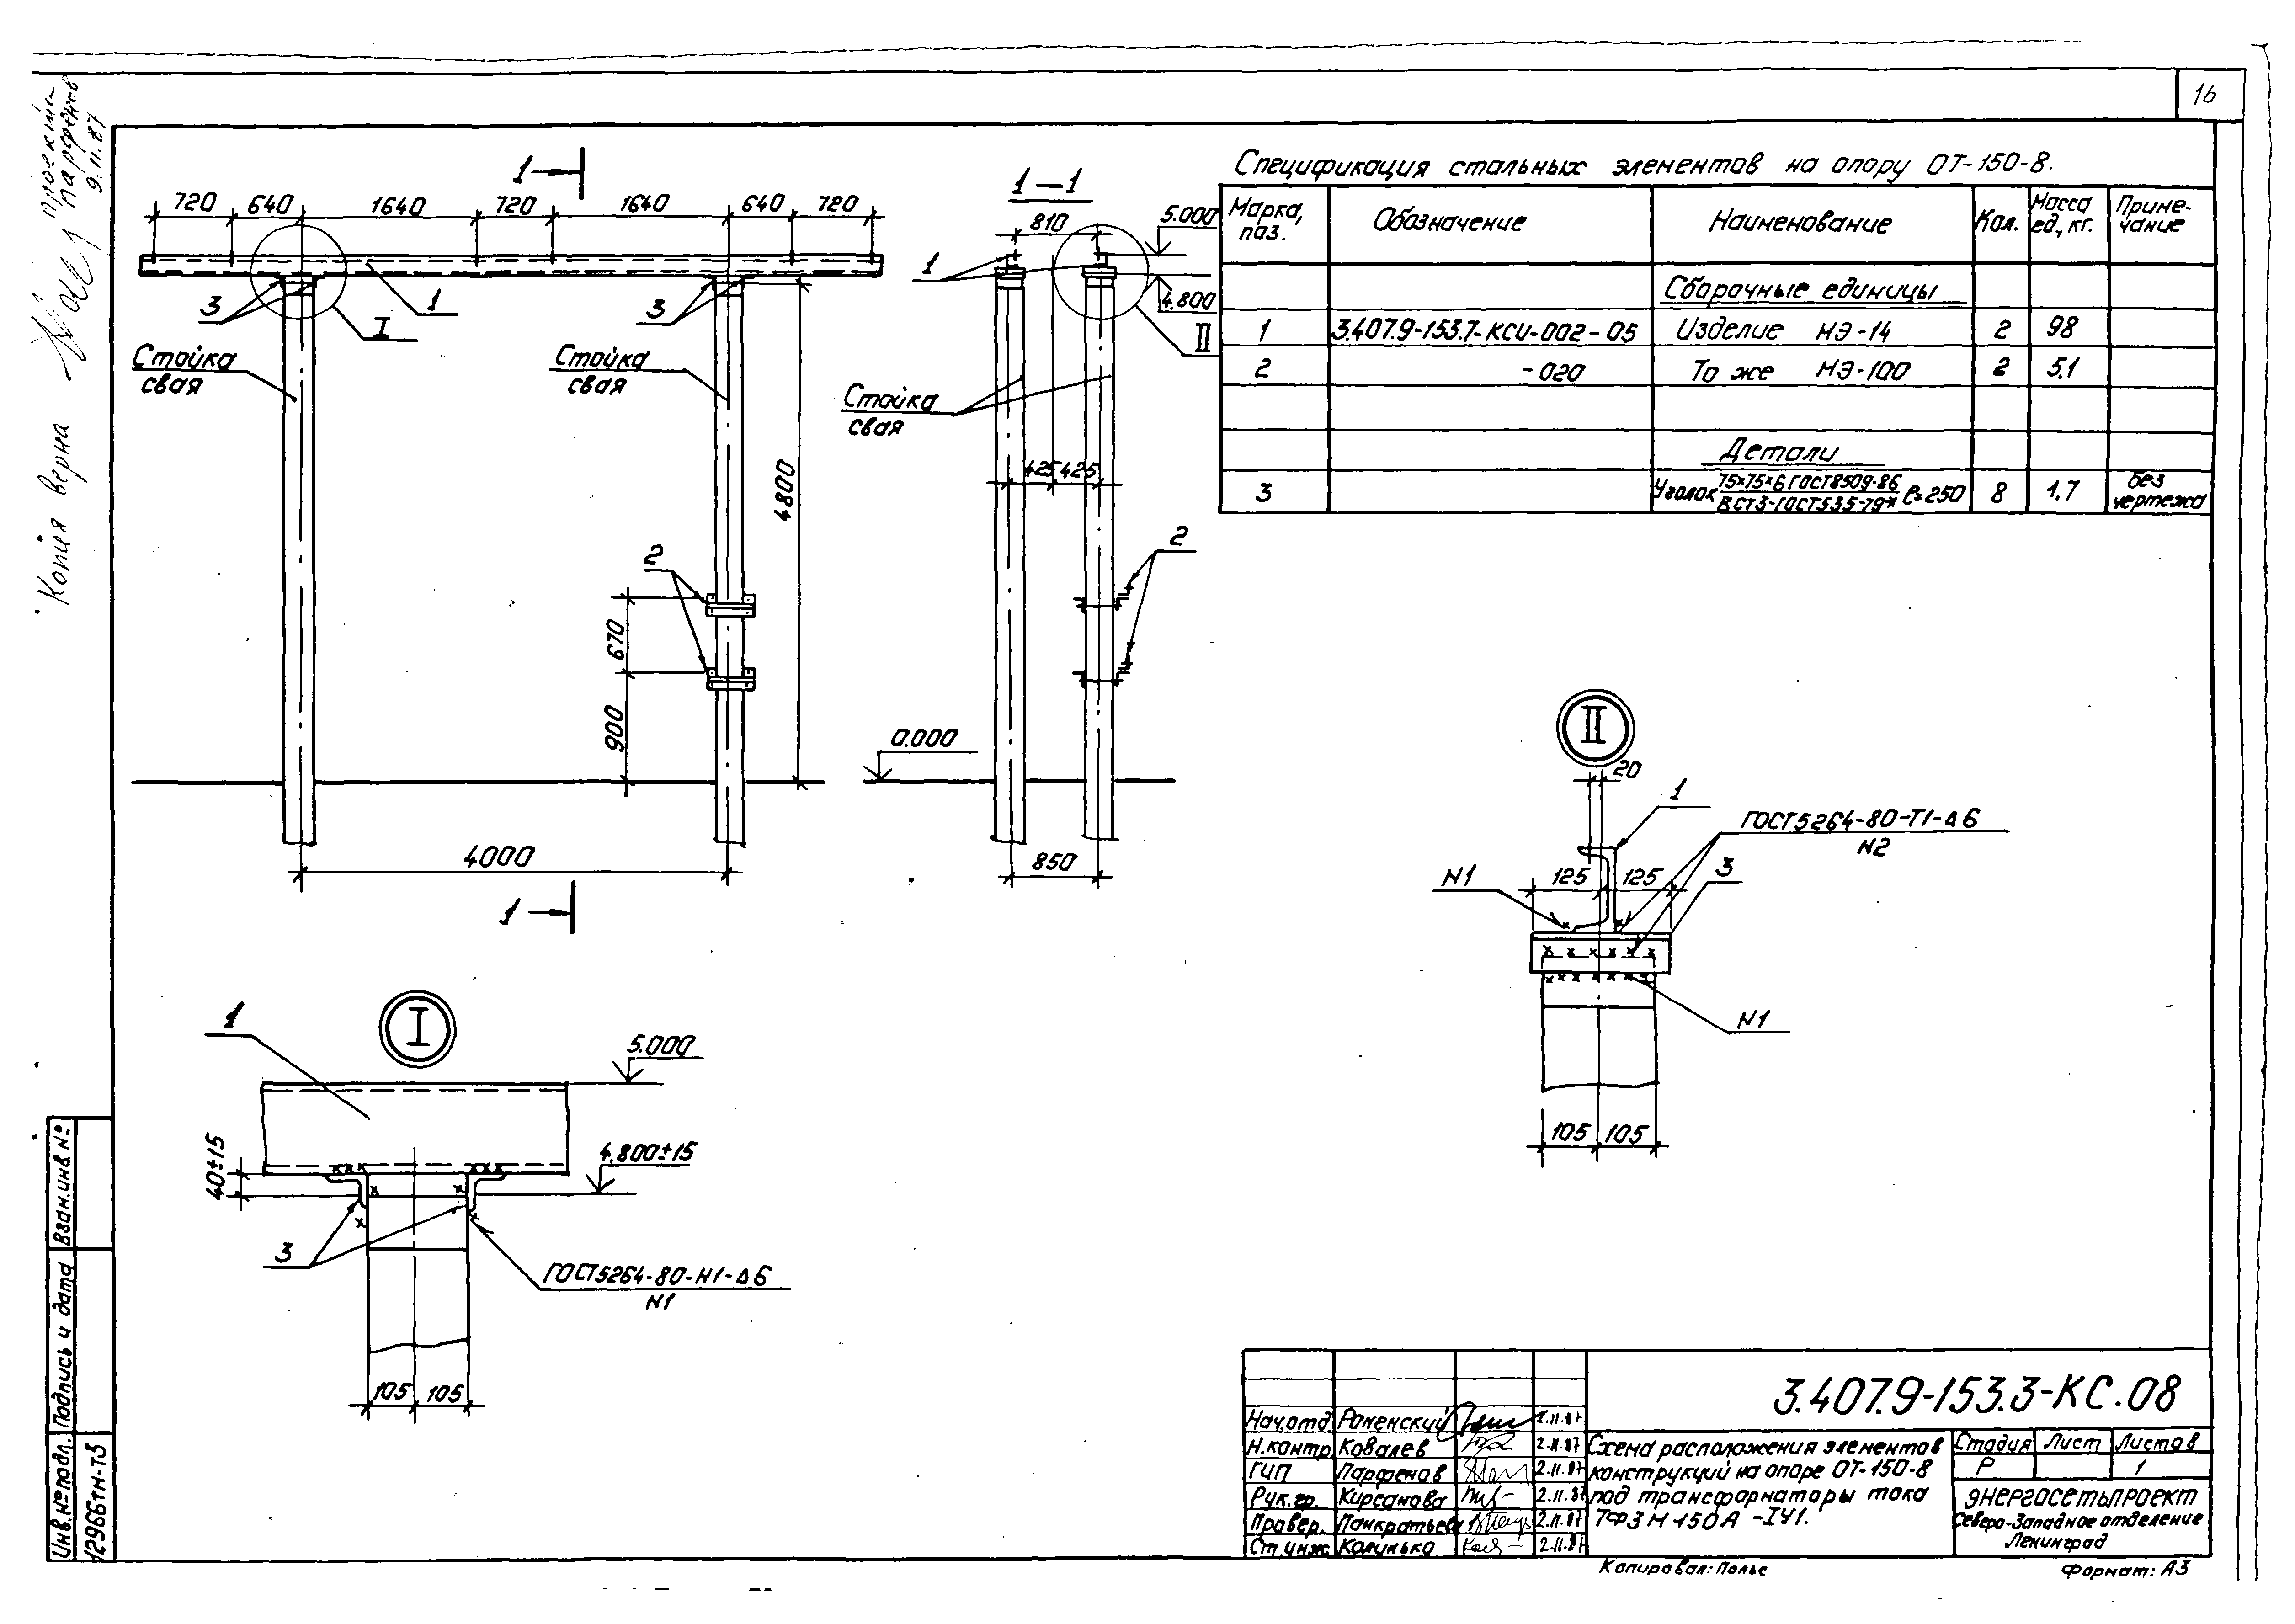 16
Копия верна
9.11.87
Спецификация стальных элементов на опору ОТ-150-8.
Марка, поз.
Обозначение
Наименование
Кол.
Масса ед., кг.
Примечание
Сборочные единицы
1 3.407.9-153.7-КСИ-002-05 Изделие МЭ-14 2 98
2 -020 То же МЭ-100 2 5,1
Детали
3 Уголок 75×75×6 ГОСТ 8509-86 / ВСт3-ГОСТ 535-79* ℓ=250 8 1,7 без чертежа
1
720 640 1640 720 1640 640 720
3 1 I 3
Стойка
свая
Стойка
свая
4800
2
670
900
4000
1
1-1
810
5.000
1
4.800
II
Стойка
свая
425 425
2
0.000
850
II
20
1
ГОСТ 5264-80-Т1-Δ6
N2
N1
125 125
3
N1
105 105
I
1
5.000
40±15
4.800±15
3
ГОСТ 5264-80-Н1-Δ6
N1
105 105
Взам. инв. №
Подпись и дата
Инв. № подл.
12966тм-т3
3.407.9-153.3-КС.08
Нач.отд. Роменский 2.11.87
Н.контр. Ковалев 2.11.87
ГИП Парфенов 2.11.87
Рук.гр. Кирсанова 2.11.87
Провер. Панкратьева 2.11.87
Ст.инж. Колунько 2.11.87
Схема расположения элементов
конструкций на опоре ОТ-150-8
под трансформаторы тока
ТФЗМ 150А -IУ1.
Стадия Лист Листов
Р 1
ЭНЕРГОСЕТЬПРОЕКТ
Северо-Западное отделение
Ленинград
Копировал: Полье
Формат: А3